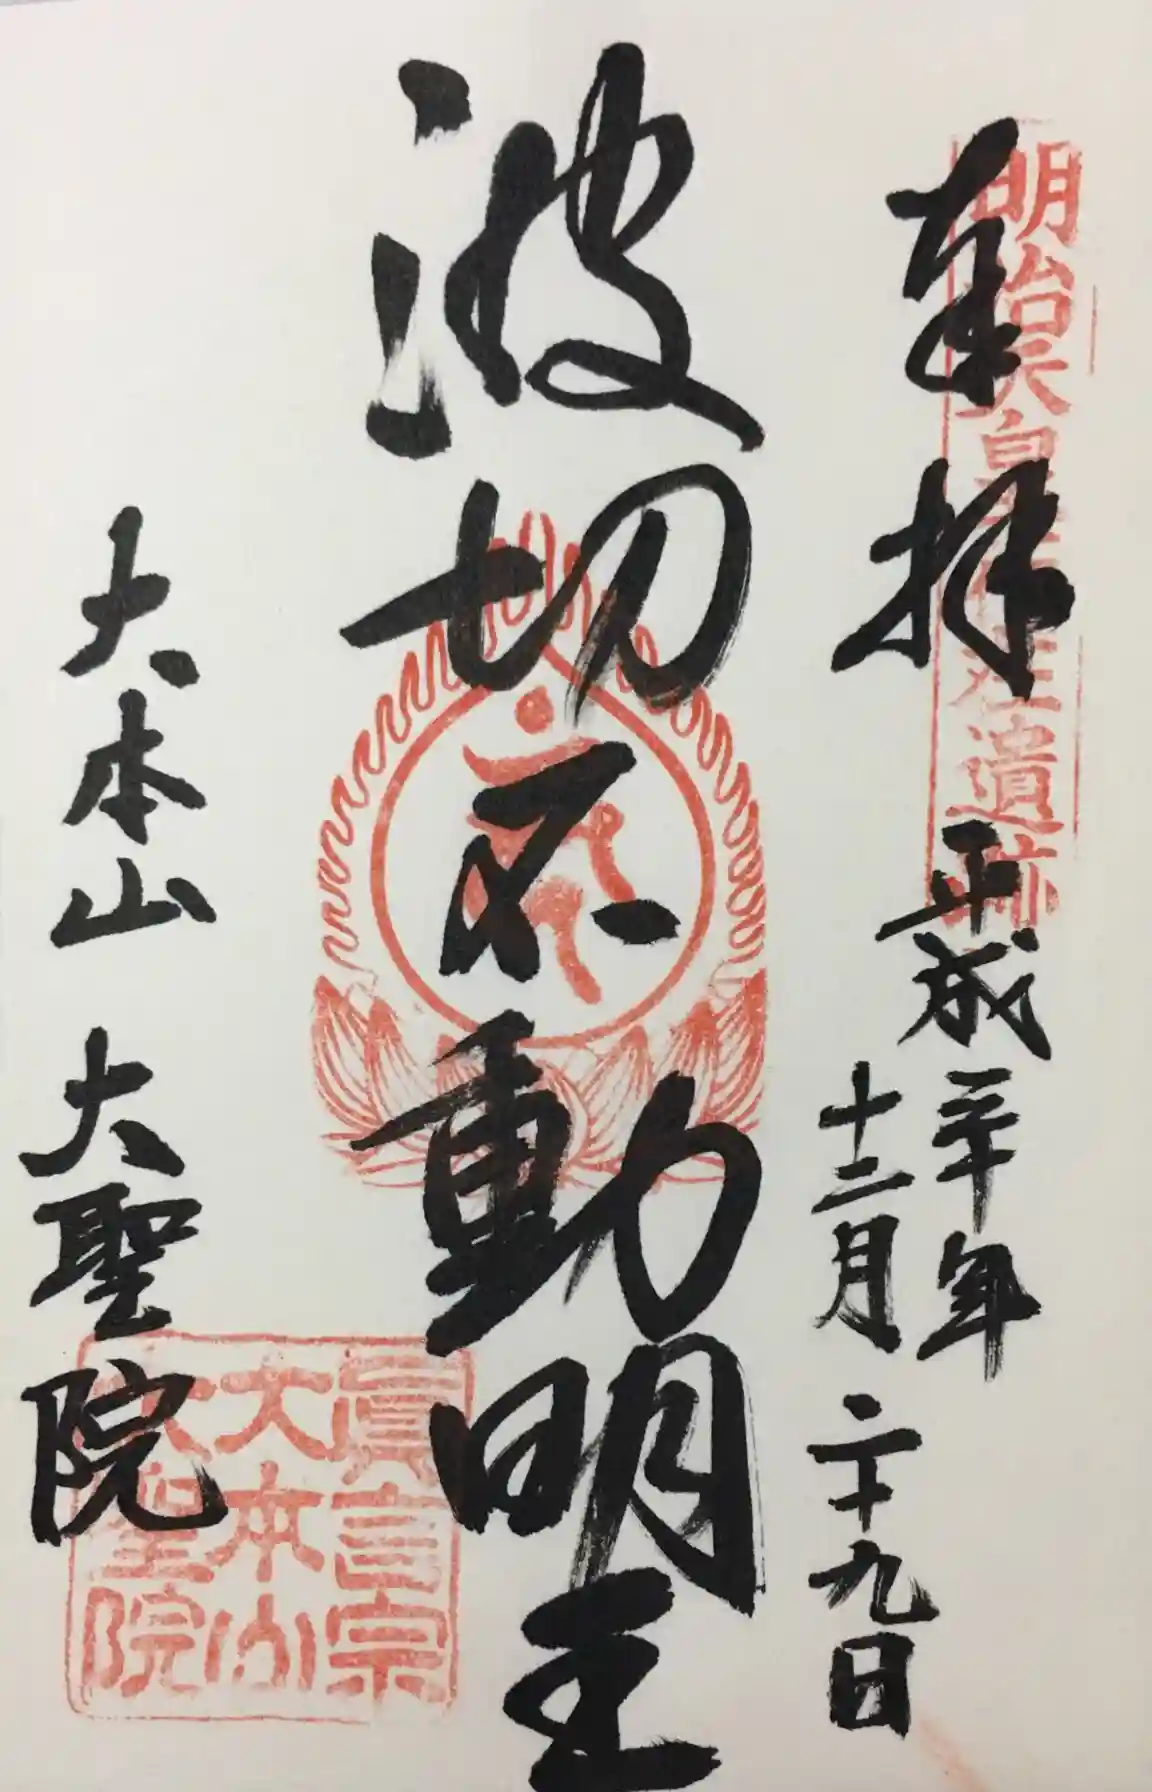 明治天皇行在遺跡
奉拝
平成三十年
十二月二十九日
波切不動明王
大本山 大聖院
眞言宗
大本山
大聖院